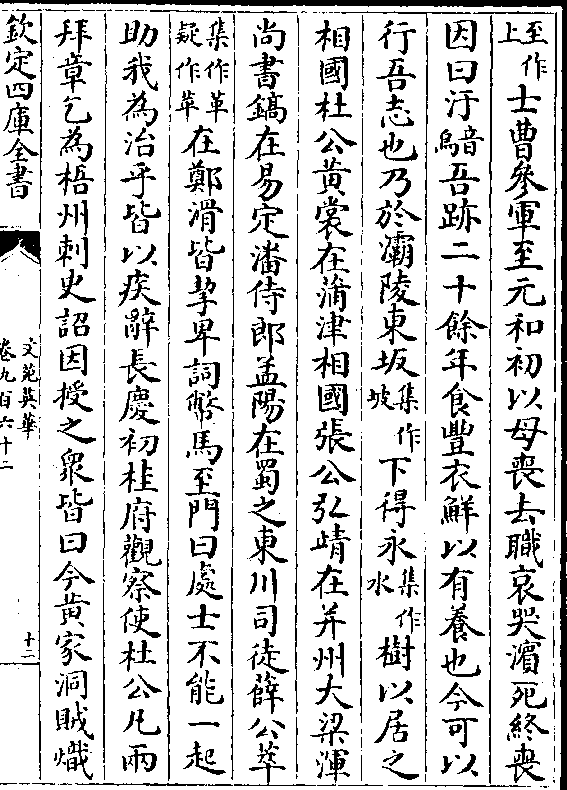 至作上士曹參軍至元和初以母喪去職哀哭濵死終喪
因曰汙音烏吾跡二十餘年食豐衣鮮以有養也今可以
行吾志也乃於灞陵東坂集作坡下得永集作水樹以居之
相國杜公黄裳在蒲津相國張公弘靖在并州大梁渾
尚書鎬在易定潘侍郎孟陽在蜀之東川司徒薛公苹
集作革疑作萃在鄭滑皆挈卑詞幣馬至門曰處士不能一起
助我為治乎皆以疾辭長慶初桂府觀察使杜公凡兩
拜章乞為梧州刺史詔因授之衆皆曰今黄家洞賊熾
欽定四庫全書
文苑英華
卷九百六十二
十二